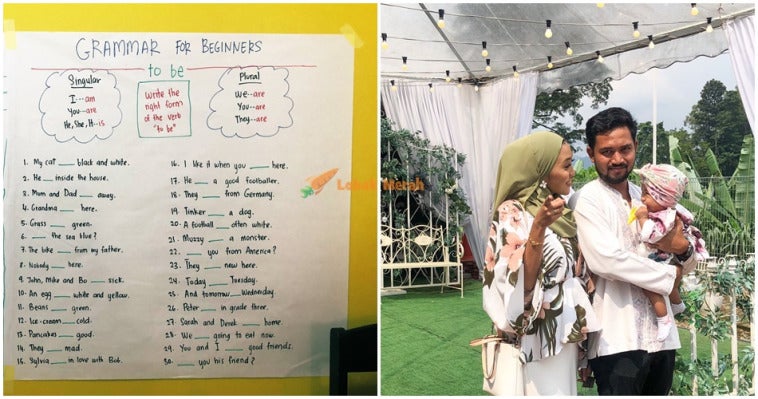 GRAMMAR FOR BEGINNERS
to be
Singular
I--am
You--are
He, She, It--is
Write the
right form
of the verb
"to be"
Plural
We--are
You--are
They--are
1. My cat ___ black and white.
2. He ___ inside the house.
3. Mum and Dad ___ away.
4. Grandma ___ here.
5. Grass ___ green.
6. ___ the sea blue?
7. The bike ___ from my father.
8. Nobody ___ here.
9. John, Mike and Bo ___ sick.
10. An egg ___ white and yellow.
11. Beans ___ green.
12. Ice-cream ___ cold.
13. Pancakes ___ good.
14. They ___ mad.
15. Sylvia ___ in love with Bob.
16. I like it when you ___ here.
17. He ___ a good footballer.
18. They ___ from Germany.
19. Tinker ___ a dog.
20. A football ___ often white.
21. Muzzy ___ a monster.
22. ___ you from America?
23. They ___ now here.
24. Today ___ Tuesday.
25. And tomorrow ___ Wednesday.
26. Peter ___ in grade three.
27. Sarah and Derek ___ home.
28. We ___ going to eat now.
29. You and I ___ good friends.
30. ___ you his friend?
Lobak Merah